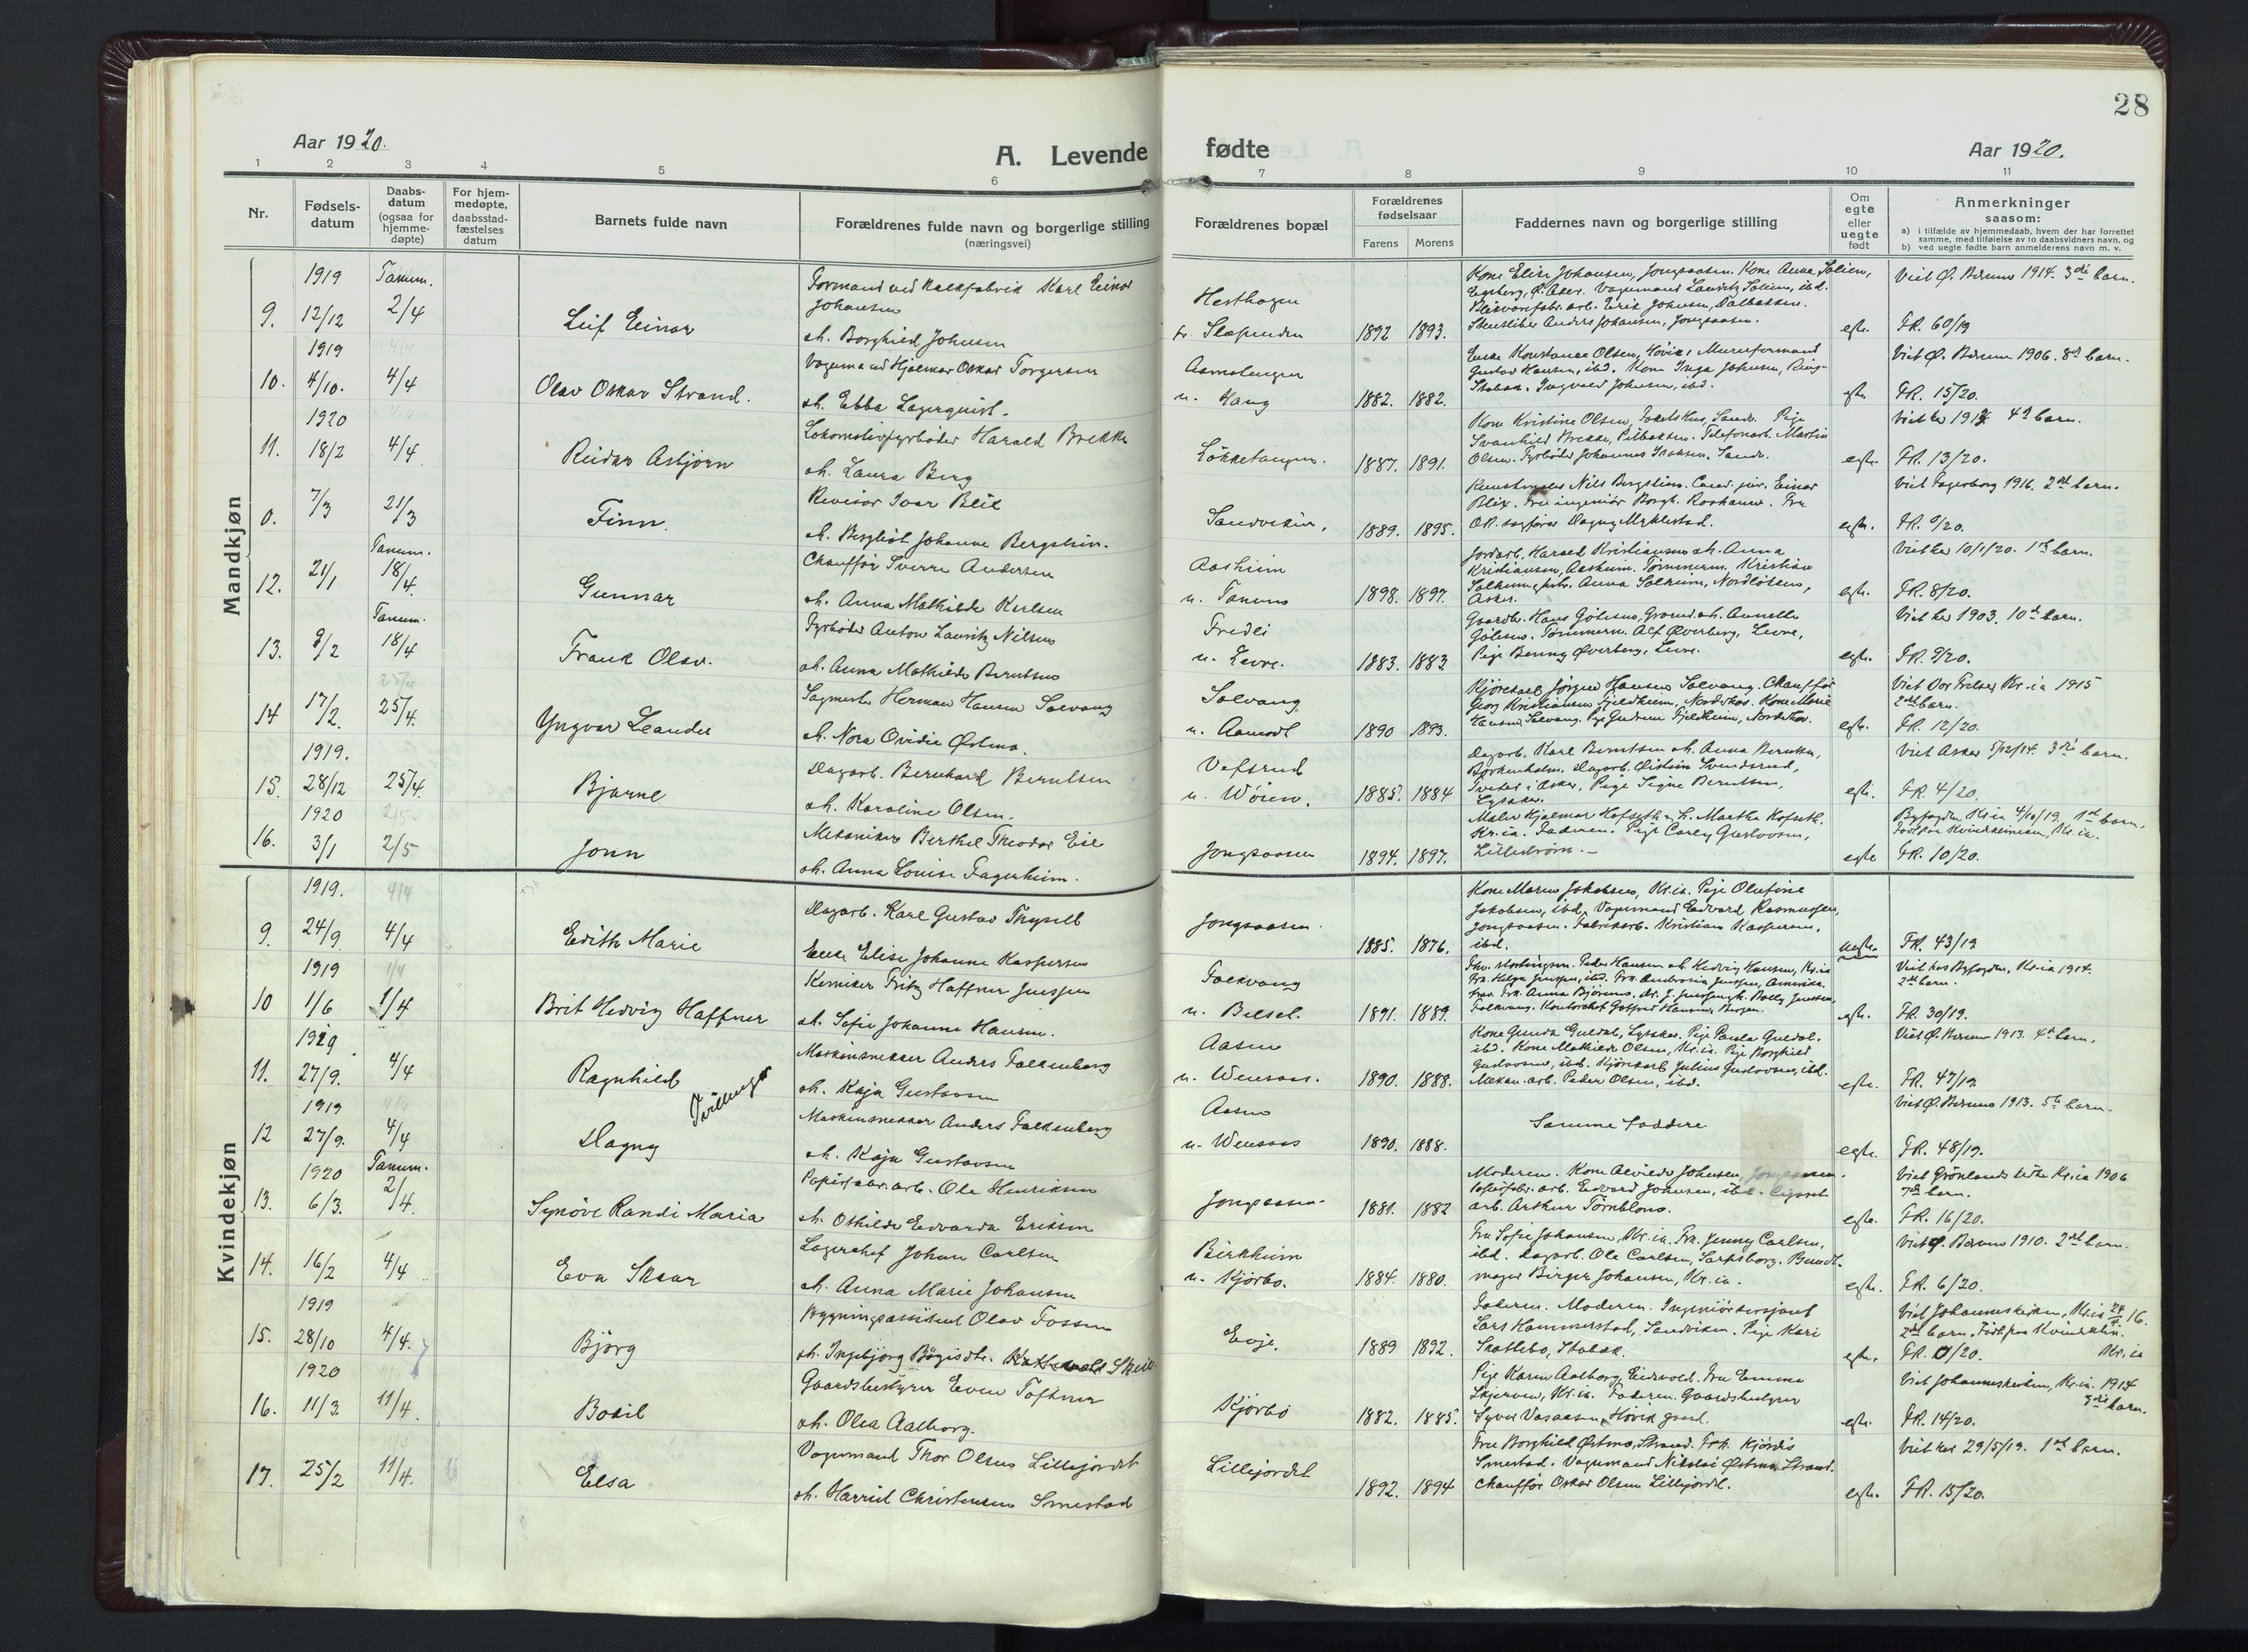 28
Aar 1920.
A. Levende fødte
Aar 1920.
1 2 3 4 5 6 7 8 9 10 11
Nr.
Fødsels-
datum
Daabs-
datum
(ogsaa for
hjemme-
døpte)
For hjem-
medøpte,
daabsstad-
fæstelses
datum
Barnets fulde navn
Forældrenes fulde navn og borgerlige stilling
(næringsvei)
Forældrenes bopæl
Forældrenes
fødselsaar
Farens Morens
Faddernes navn og borgerlige stilling
Om
egte
eller
uegte
født
Anmerkninger
saasom:
a) i tilfælde av hjemmedaab, hvem der har forrettet
samme, med tilføielse av to daabsvidners navn, og
b) ved uegte fødte barn anmelderens navn m. v.
Mandkjøn
1919 Tanum.
9. 12/12 2/4 Leif Einar
Formand ved Kalkfabrik Karl Einar
Johansen
oh. Borghild Johnsen
Hesthagen
pr. Slependen 1892 1893.
Kone Elise Johansen, Jongsaasen. Kone Anna Solien,
Skuetliber Anders Johansen, Jongsaasen.
egte.
Viet Ø. Bærum 1914. 3die barn.
FR. 60/19
1919
10. 4/10. 4/4 Olav Oskar Strand.
Vognmand Hjalmar Oskar Torgersen
oh. Ebba Lagerquist.
u. Haug 1882. 1882.
Enke Konstanse Olsen, Høvik, Murerformand
Gustav Hansen, ibd. Kone Inga Johnsen, Ring-
Stabæk. Ingvald Johnsen, ibd.
egte
Viet Ø. Bærum 1906. 8de barn.
FR. 15/20.
1920
11. 18/2 4/4 Reidar Asbjørn
Lokomotivfyrbøder Harald Brekke
oh. Laura Berg
Løkketangen. 1887. 1891.
Kone Kristine Olsen,
Svanhild Brekke, Telefonarb. Martin
Olsen. Fyrbøder Johannes Isaksen, Sandv.
egte.
4de barn.
FR. 13/20.
0. 7/3 21/3 Finn.
Revisor Ivar Blix
oh. Bergliot Johanne Bergslien.
Sandviken. 1889. 1895.
Kunstmaler Nils Bergslien. Cand. jur. Einar
Blix. Fru ingeniør Borgh. Fru
OR. sagfører Dagny Myklestad.
egte.
Viet Fagerborg 1916. 2det barn.
FR. 9/20.
Tanum.
12. 21/1 18/4. Gunnar
Chauffør Sverre Andersen
oh. Anna Mathilde Karlsen
Aasheim
u. Tanum 1898. 1897.
Jordarb. Harald Kristiansen oh. Anna
Kristiansen, Aasheim. Tømmerm. Kristian
Solheim, Anna Solheim,
Asker.
egte.
Viet her 10/1/20. 1ste barn.
FR. 8/20.
Tanum.
13. 8/2 18/4 Frank Olav.
Fyrbøder Anton Lauritz Nilsen
oh. Anna Mathilde Berntsen
Fredli
u. Levre. 1883. 1883
Gaardbr. Hans Gjølsen, oh. Annette
Gjølsen. Tømmerm. Alf Øverberg, Levre,
Pige Benny Øverberg, Levre.
egte.
Viet her 1903. 10de barn.
FR. 9/20.
14 17/2. 25/4. Yngvar Leander
Sagmester Herman Hansen Solvang
oh. Nora Ovidie Østmo.
Solvang
u. Aamodt 1890 1893.
Kjørekarl Jørgen Hansen Solvang. Chauffør
Georg Kristiansen Fjeldheim, Nordskog. Kone Marie
Hansen, Solvang. Pige Gudrun Fjeldheim, Nordskog.
egte.
Viet Vor Frelser Kr.ia 1915
2det barn.
FR. 12/20.
1919.
15. 28/12 25/4. Bjarne
Dagarb. Bernhard Berntsen
oh. Karoline Olsen.
Vefsrud
u. Wøien. 1885. 1884
Dagarb. Karl Berntsen oh. Anna Berntsen,
Bjerkenholm. Dagarb. Kristian Svendsrud,
Tveter i Asker, Pige Signe Berntsen,
Lysaker.
egte.
Viet Asker 5/12/14. 3die barn.
FR. 4/20.
1920
16. 3/1 2/5 Jonn
Mekaniker Berthel Theodor Eie
oh. Anna Louise Fagerheim.
Jongsaasen 1894. 1897.
Maler Hjalmar Hofseth oh. Martha Hofseth.
Kr.ia. Faderen. Pige Carly Gustavsen,
Lillestrøm.
egte
Byfogden Kr.ia 4/10/19. 1ste barn.
Født paa Kvindeklinikken, Kr.ia.
FR. 10/20.
Kvindekjøn
1919.
9. 24/9 4/4 Edith Marie
Dagarb. Karl Gustav Thysell
Enke Elise Johanne Kaspersen
Jongsaasen. 1885. 1876.
Kone Maren Jakobsen, Kr.ia. Pige Olufine
Jakobsen, ibd. Vognmand Edvard Rasmussen,
Jongsaasen. Fabrikarb. Kristian Kaspersen,
ibd.
uegte.
FR. 43/19
1919
10 1/6 1/4 Brit Hedvig Haffner
Kemiker Fritz Haffner Jenssen
oh. Sofie Johanne Hansen.
Folkvang
u. Belset. 1891. 1889.
Peder Hansen oh. Hedvig Hansen, Kr.ia
Folkvang. Kontorchef Gotfred Hansen, Bergen.
egte.
Viet hos Byfogden, Kr.ia 1914.
2det barn.
FR. 30/19.
1919
11. 27/9. 4/4 Ragnhild
Tvillinger
Maskinsnekker Anders Falkenberg
oh. Kaja Gustavsen
Aasen
u. Wensaas. 1890. 1888.
Kone Gunda Guldal, Lysaker. Pige Paula Guldal.
ibd. Kone Mathilde Olsen, Kr.ia. Pige Borghild
Gustavsen, ibd. Kjørekarl Julius Gustavsen, ibd.
Mekan. arb. Peder Olsen, ibd.
egte.
Viet Ø. Bærum 1913. 4de barn.
FR. 47/19.
1919
12 27/9. 4/4 Dagny
Maskinsnekker Anders Falkenberg
oh. Kaja Gustavsen
Aasen
u. Wensaas 1890. 1888.
Samme faddere
egte.
Viet Ø. Bærum 1913. 5te barn.
FR. 48/19.
1920 Tanum.
13. 6/3. 2/4. Synöve Randi Maria
Papirfabr. arb. Ole Henriksen
oh. Othilde Edvarda Eriksen
Jongsaasen 1881. 1882
Moderen. Kone Alvilde Johnsen, Jongsaasen.
Papirfabr. arb. Edvard Johnsen, ibd.
arb. Arthur Törnblom.
egte.
Viet Grönlands kirke Kr.ia 1906
7de barn.
FR. 16/20.
14. 16/2 4/4 Eva Skaar
Lagerchef Johan Carlsen
oh. Anna Marie Johansen
Birkheim
u. Kjørbo. 1884. 1880.
Fru Sofie Johansen, Kr.ia. Frk. Jenny Carlsen,
ibd. Dagarb. Ole Carlsen, Sarpsborg. Bundt-
mager Birger Johansen, Kr.ia.
egte.
Viet Ø. Bærum 1910. 2det barn.
FR. 6/20.
1919
15. 28/10 4/4. Bjørg
Bygningsassistent Olav Fossen
oh. Ingebjørg Bøgisdtr. Skeie
Evje. 1889 1892.
Faderen. Moderen. Ingeniørsersjant
Lars Hammerstad, Sandviken. Pige Kari
Skottebo, Stabæk.
egte.
Viet Johanneskirken, Kr.ia 16.
2det barn. Født paa Kvindeklin.
Kr.ia
FR. 0/20.
1920
16. 11/3. 11/4. Bodil
Gaardsbestyrer Even Tofsrud
oh. Olea Aalborg.
Kjørbo 1882. 1885.
Pige Karen Aalborg, Eidsvold. Fru Emma
Skjerven, Kr.ia. Faderen. Gaardsbestyrer
Syver Vasaasen, Høvik gaard.
egte.
Viet Johanneskirken, Kr.ia. 1914
3die barn.
FR. 14/20.
17. 25/2 11/4. Elsa
Vognmand Thor Olsen Lillejordet
oh. Harriet Christensen Smestad
Lillejordet 1892. 1894
Fru Borghild Østmo, Strand. Frk. Hjørdis
Smestad. Vognmand Nikolai Østmo, Strand.
Chauffør Oskar Olsen Lillejordet.
egte.
Viet her 29/5/19. 1ste barn.
FR. 15/20.